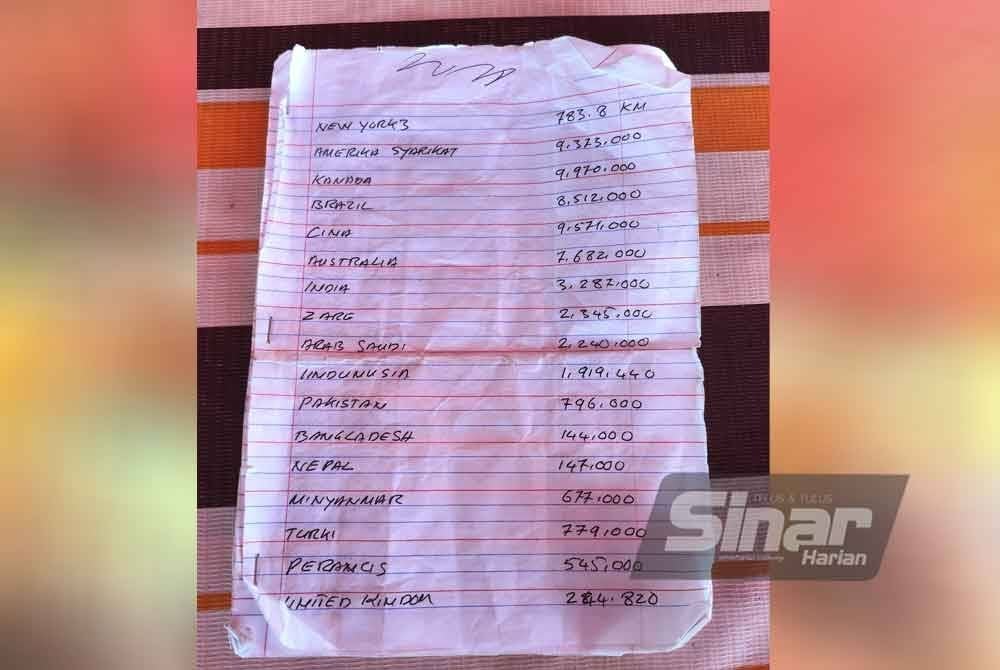 NEW YORK3 783.8 KM
AMERIKA SYARIKAT 9,373,000
KANADA 9,970,000
BRAZIL 8,512,000
CINA 9,571,000
AUSTRALIA 7,682,000
INDIA 3,287,000
ZARE 2,345,000
ARAB SAUDI 2,240,000
UNDUNUSIA 1,919,440
PAKISTAN 796,000
BANGLADESH 144,000
NEPAL 147,000
MINYANMAR 677,000
TURKI 779,000
PERANCIS 545,000
UNITED KINDOM 244.820
TELUS & TULUS
Sinar
Harian